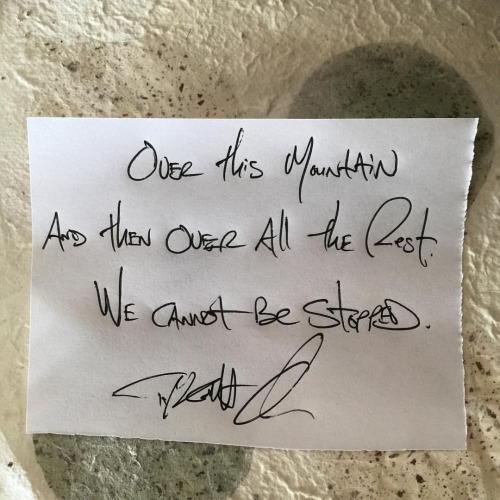 Over this Mountain
And then over All the Rest.
We cannot Be Stopped.